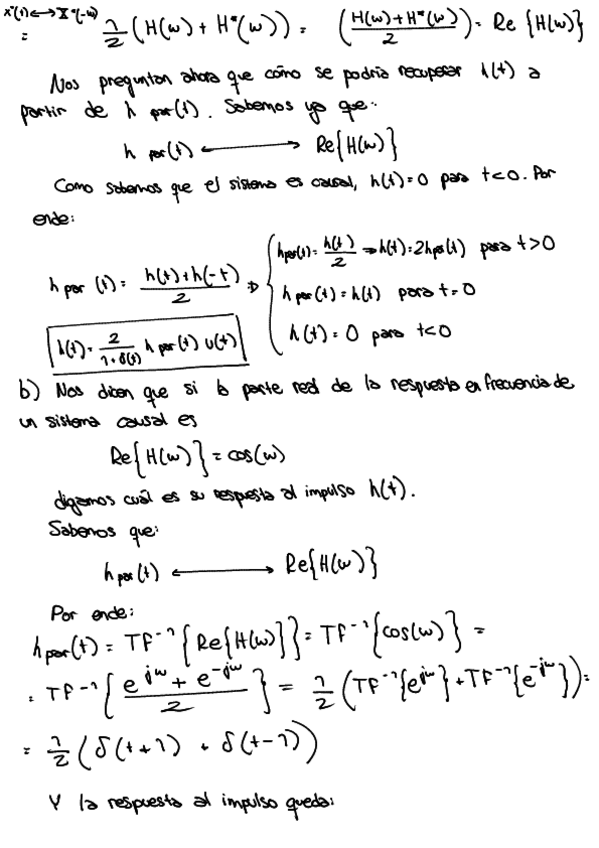 x*(t)⟷X*(-w)
= 1/2 (H(w) + H*(w)) = ((H(w)+H*(w))/2) = Re {H(w)}
Nos preguntan ahora que cómo se podría recuperar h(t) a
partir de h par(t). Sabemos ya que:
h par(t) ⟷ Re{H(w)}
Como sabemos que el sistema es causal, h(t)=0 para t<0. Por
ende:
h par (t) = (h(t)+h(-t))/2 ⇒ { hpar(t) = h(t)/2 ⇒ h(t)=2hpar(t) para t>0
h par(t) = h(t) para t=0
h(t) = 0 para t<0
h(t) = 2/(1+δ(t)) h par(t) u(t)
b) Nos dicen que si la parte real de la respuesta en frecuencia de
un sistema causal es
Re{H(w)} = cos(w)
digamos cuál es su respuesta al impulso h(t).
Sabemos que:
h par(t) ⟷ Re{H(w)}
Por ende:
h par(t) = TF⁻¹{Re{H(w)}} = TF⁻¹{cos(w)} =
= TF⁻¹{(e^jw + e^-jw)/2} = 1/2 (TF⁻¹{e^jw} + TF⁻¹{e^-jw}) =
= 1/2 (δ(t+1) + δ(t-1))
Y la respuesta al impulso queda: